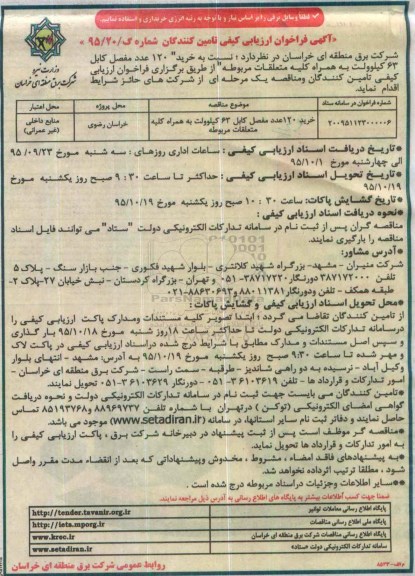 لطفا وسایل برقی را بر اساس نیاز و با توجه به رتبه انرژی خریداری و استفده نمائید
«آگهی فراخوان ارزیابی کیفی تامین کنندگان شماره گ/۹۵/۲۰»
وزارت نیرو
شرکت برق منطقه ای خراسان
شرکت برق منطقه ای خراسان در نظردارد ؛ نسبت به خرید" ۱۲۰ عدد مفصل کابل
۶۳ کیلوولت به همراه کلیه متعلقات مربوطه "از طریق برگزاری فراخوان ارزیابی
کیفی تامین کنندگان ومناقصه یک مرحله ای از شرکت های حائز شرایط
اقدام نماید.
شماره فراخوان در سامانه ستاد	موضوع مناقصه	محل پروژه	محل اعتبار
۲۰۰۹۵۱۱۲۳۰۰۰۰۰۶	خرید ۱۲۰عدد مفصل کابل ۶۳ کیلوولت به همراه کلیه متعلقات مربوطه	خراسان رضوی	منابع داخلی (غیر عمرانی)
*تاریخ دریافت اسناد ارزیابی کیفی : ساعات اداری روزهای : سه شنبه مورخ ۹۵/۰۹/۲۳
الی چهارشنبه مورخ ۹۵/۱۰/۱
*تاریخ تحویل اسناد ارزیابی کیفی : حداکثر تا ساعت ۳۰ : ۹ صبح روز یکشنبه مورخ
۹۵/۱۰/۱۹
*تاریخ گشایش پاکات: ساعت ۳۰ : ۱۰ صبح روز یکشنبه مورخ ۹۵/۱۰/۱۹
*نحوه دریافت اسناد ارزیابی کیفی :
مناقصه گران پس از ثبت نام در سامانه تدارکات الکترونیکی دولت "ستاد" می توانند فایل اسناد
مناقصه را بارگیری نمایند.
*آدرس مشاور:
شرکت منیران - مشهد- بزرگراه شهید کلانتری - بلوار شهید فکوری - جنب بازار سنگ - پلاک ۵
تلفن ۳۸۷۱۷۲۰۰۰ دورنگار ۳۸۷۱۷۲۲۰-۰۵۱ و تهران - بزرگراه کردستان - نبش خیابان ۲۷-پلاک ۲-
طبقه همکف - تلفن ودورنگار۸۸۰۱۱۳۸۱ و۸۸۶۳۰۶۹۳-۰۲۱
*محل تحویل اسناد ارزیابی کیفی و گشایش پاکات:
از تامین کنندگان تقاضا می گردد ؛ ابتدا تصویر کلیه مستندات ومدارک پاکت ارزیابی کیفی را
درسامانه تدارکات الکترونیکی دولت تا حداکثر ساعت ۱۸روز شنبه مورخ ۹۵/۱۰/۱۸ بار گذاری
و سپس اصل مستندات و مدارک مطابق با شرایط درج شده دراسناد ارزیابی کیفی در پاکت لاک
و مهر شده تا ساعت ۹:۳۰ صبح روز یکشنبه مورخ ۹۵/۱۰/۱۹ به آدرس: مشهد - انتهای بلوار
وکیل آباد - نرسیده به دو راهی شاندیز - طرقبه - سمت راست - شرکت برق منطقه ای خراسان -
امور تدارکات و قرارداد ها - تلفن ۳۶۱۰۳۶۱۹-۰۵۱ - دورنگار ۳۶۱۰۳۶۲۹-۰۵۱ تحویل نمایند.
*تامین کنندگان می بایست جهت ثبت نام در سامانه تدارکات الکترونیکی دولت و نحوه دریافت
گواهی امضای الکترونیکی (توکن ) درتهران با شماره تلفن ۸۸۹۶۹۷۳۷ و ۸۵۱۹۳۷۶۸ تماس
حاصل نمایند و دفاتر ثبت نام سایر استانها، در سامانه (www.setadiran.ir) موجود می باشد.
*مناقصه گر موظف است پس از ثبت پیشنهاد در دبیرخانه شرکت برق ، پاکت ارزیابی کیفی را
به امور تدارکات و قرارداد ها تحویل نماید.
*به پیشنهادهای فاقد امضاء ، مشروط ، مخدوش وپیشنهاداتی که بعد از انقضاء مدت مقرر واصل
شود ، مطلقا ترتیب اثرداده نخواهد شد.
*سایر اطلاعات وجزئیات دراسناد مربوطه درج شده است .
ضمنا جهت کسب اطلاعات بیشتر به پایگاه های اطلاع رسانی به آدرس ذیل مراجعه نمایند.
پایگاه اطلاع رسانی معاملات توانیر	http://tender.tavanir.org.ir
پایگاه ملی اطلاع رسانی مناقصات	http://iets.mporg.ir
پایگاه اطلاع رسانی مناقصات شرکت برق منطقه ای خراسان	www.krec.ir
سامانه تدارکات الکترونیکی دولت «ستاد»	www.setadiran.ir
روابط عمومی شرکت برق منطقه ای خراسان